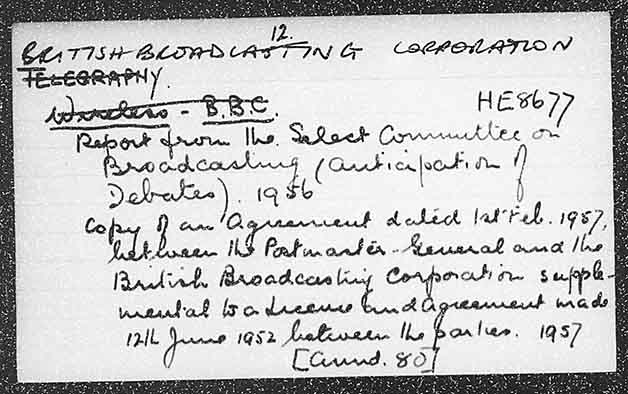 12.
BRITISH BROADCASTING CORPORATION
TELEGRAPHY.
Wireless - B.B.C. HE8677
Report from the Select Committee on
Broadcasting (Anticipation of
Debates). 1956
Copy of an Agreement dated 1st Feb. 1957,
between the Postmaster-General and the
British Broadcasting Corporation supple-
mental to a Licence and agreement made
12th June 1952 between the parties. 1957
[Cmnd. 80]